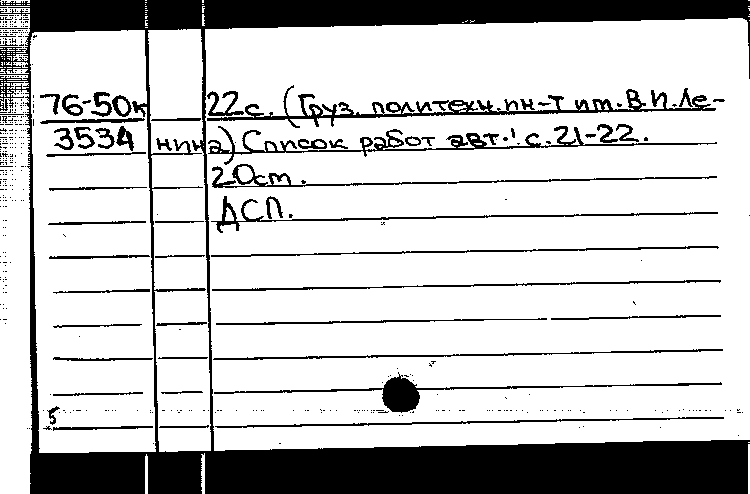 76-50к 22с. (Груз. политехн. ин-т им. В.И. Ле-
3534 нина) Список работ авт.: с. 21-22.
20 cm.
ДСП.
5